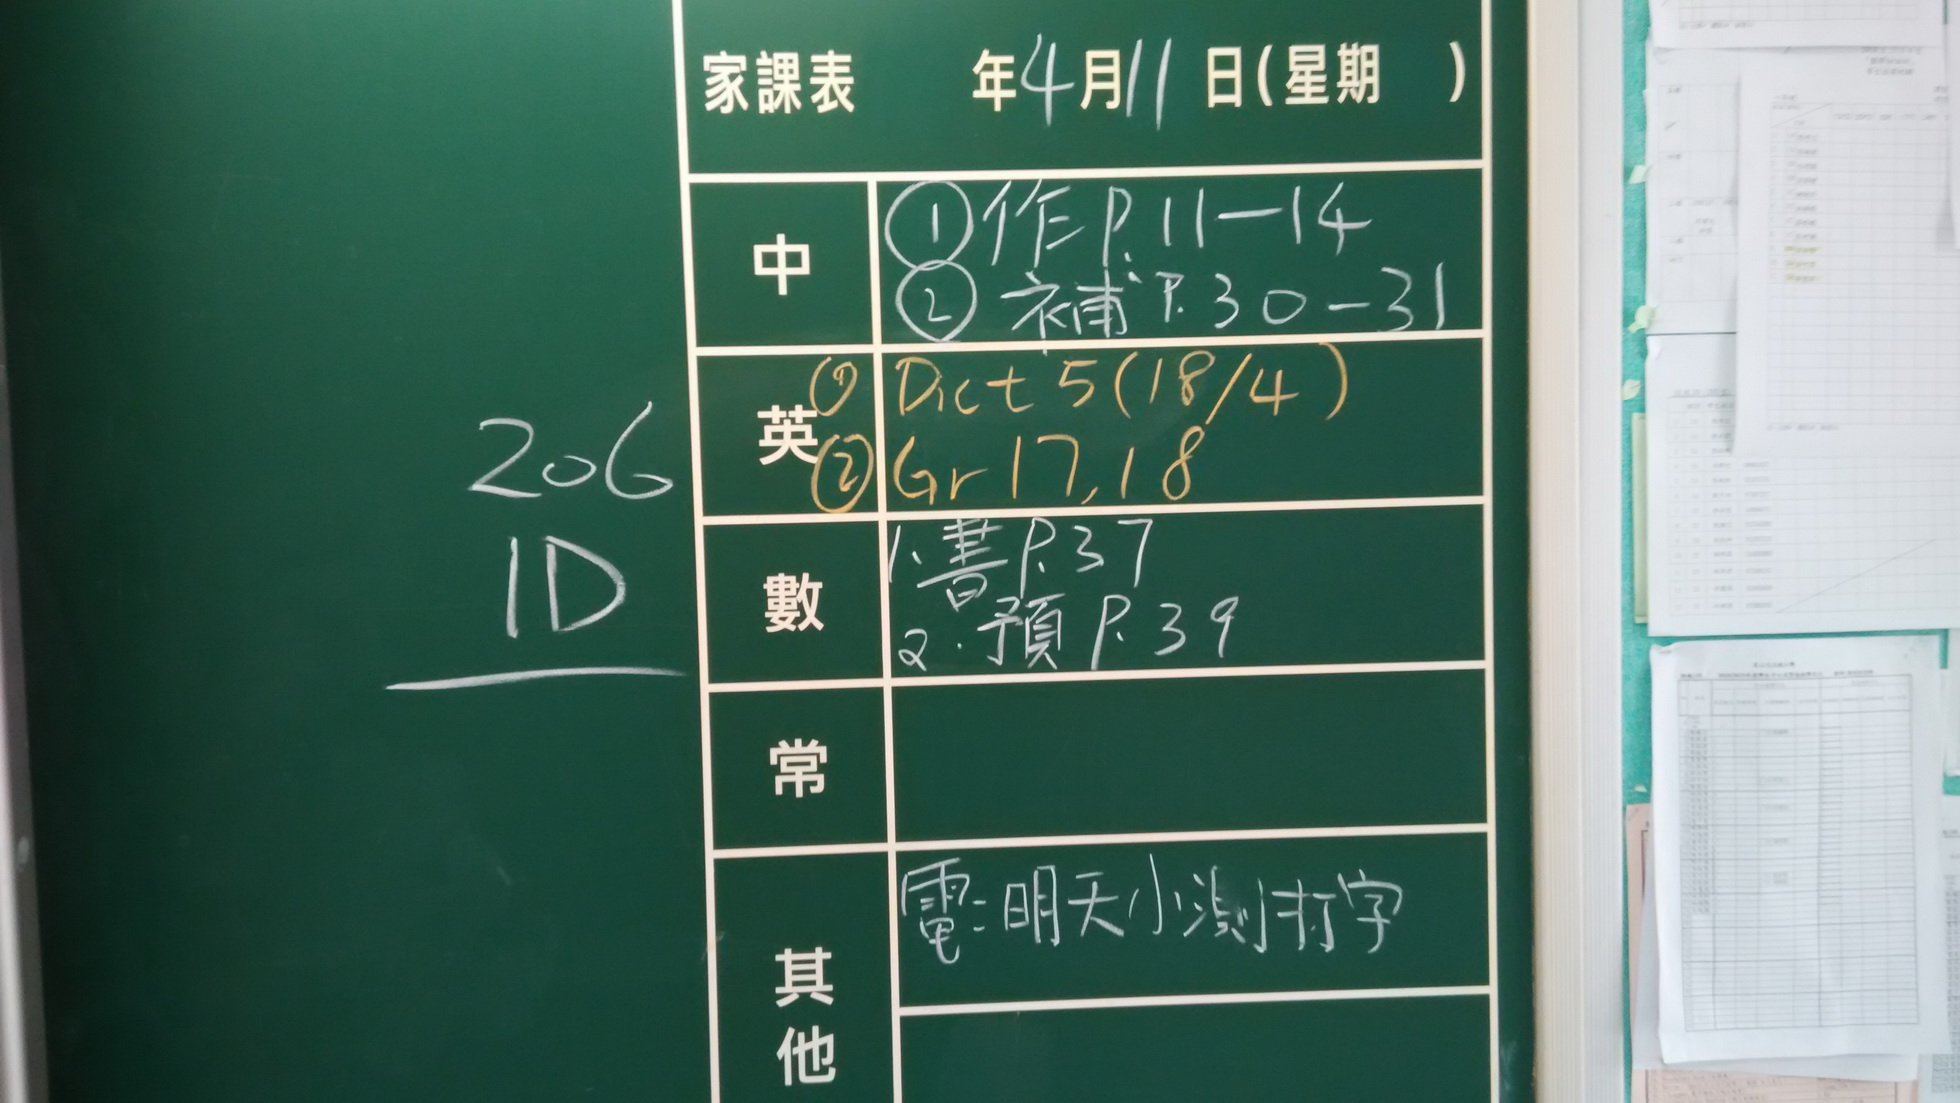 家課表 年4月11日(星期 )
中
①作P.11-14
②補P.30-31
英
①Dict 5(18/4)
②Gr 17,18
206
1D
數
1.書P.37
2.預P.39
常
其他
電:明天小測打字